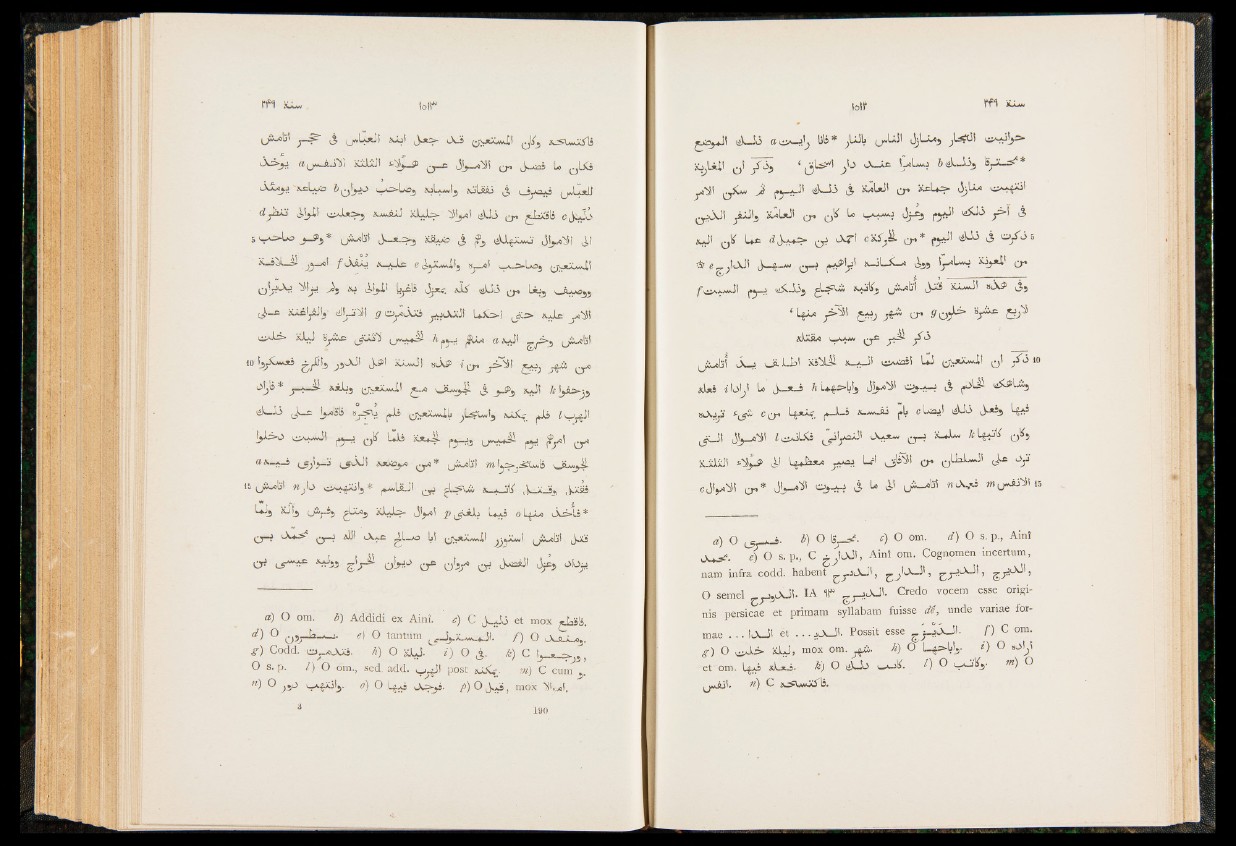 ١٥١٢ سنة ٢٤٩
حوانيت التجار ومنازل الناس بالنار *فانا رايت a ذلك الموضع
*محترقة b وذلك بسامرّا عند دار اسحاق، وذُكر ان المغاربة
انتهبت منازل جماعة من العامّة فى ذلك اليوم ثم سكن الامر
فى آخر ذلك اليوم وعُزل بسبب ما كان من العامّة والنفر الذين
5 ذكرت فى ذلك اليوم *من الحركة c احمد بن جميل d عما كان اليه
من المعونة بسامرّا وولى مكانه ابراهيم بن سهل الدارج e *
وفى هذه السنة قُتل أتامش وكاتبه شجاع وذلك يوم السبت f
لاربع عشرة خلون g من شهر ربيع الآخر منها،
ذكر الخبر عن سبب مقتله
10 ذُكر ان المستعين لما افضت اليه الخلافة اطلق يد أتامش
وشاهك الخادم فى بيوت الاموال واباحهما h فعل ما ارادا i فعله
فيها وفعل ذلك ايضا c بام نفسه فلم يمنعها من c شىء تريده
وكان كاتبها k سلمة بن سعيد النصرانى فكانت l الاموال التى
ترد على السلطان من الآفاق انما يصير معظمها الى هؤلاء الثلثة
15 الانفس m فعمد n اتامش الى ما فى بيوت الاموال *من الاموال c
b) O c) O om. d) O s. p., Ainî
محمد. e) O s. p., C الدارج, Ainî om. Cognomen incertum,
nam infra codd. habent
O semel IA ٩٣ Credo vocem esse origi-
nis persicae et primam syllabam fuisse unde variae for-
mae ... الدا et ... الد. Possit esse f) C om.
g) O خلت ليلة, mox om. شهر. h) O واباحهما. i) O
et om. فعله فيها. k) O كاتب ذلك. l) O وكانت. m) O
انفس. n) C فاكتسحه.
سنة ٢٤٩ ١٥١٣
فاكتسحه وكان المستعين قد جعل ابنه العبّاس فى حجر اتامش
فكان ما فضل من الاموال عن هؤلاء الثلثة الانفس a يؤخذ
للعبّاس فيصرف فى نفقاته واسبابه وصاحب ديوان b ضياعه يومئذ
دُلَيل c فاقتطع من ذلك اموالا جليلة لنفسه وجعلت الموالى تنظر d
5 الى الاموال تستهلك وهم فى ضيقة وجعل اتامش *وهو صاحب
المستعين وصاحب امره والمستولى e عليه يُنفّذ f امور الخلافة
ووصيف وبغا من ذلك كلّه بمعزل فاغريا الموالى به ولم يزالا يدبّران
الامر عليه حتى احكما التدبير فتذمّرت g الاتراك والفراغنة على
اتامش وخرج اليه a منهم يوم h الخميس لاثنتى عشرة ليلة خلت
10 من شهر ربيع الآخر من i هذه السنة اهل الدور والكرخ فعسكروا
وزحفوا k اليه وهو فى الجوسق مع المستعين وبلغه الخبر *فاراد
الهرب l فلم يمكنه واستجار بالمستعين فلم يُجِرْه فاقاموا على ذلك
من امرهم يوم الخميس ويوم الجمعة فلما كان يوم السبت دخلوا
الجوسق فاستخرجوا m اتامش *من موضعه الذى توارى فيه a
15 فقُتل وقتل كاتبه شجاع بن القاسم *وانتهبت دار n اتامش
*فأخذ منها o فيما بلغنى p اموال جليلة ومتاع وفرش وآلة ولمّا
قتل اتامش استوزر المستعين ابا صالح عبد الله بن محمّد بن
يزداد وعُزل الفضل بن مروان عن ديوان الخراج ووليه عيسى بن
a) O om. b) Addidi ex Ainî. c) C et mox فاقطع.
d) O ينظرون. e) O tantum المستولى. f) O
g) Codd. h) O ليلة. i) O فى. k) C
O s. p. l) O om., sed add. الهرب post يمكنه. m) C cum و.
n) O وانتهب دور. o) O فوجد فيها. p) O mox اموالا.
190